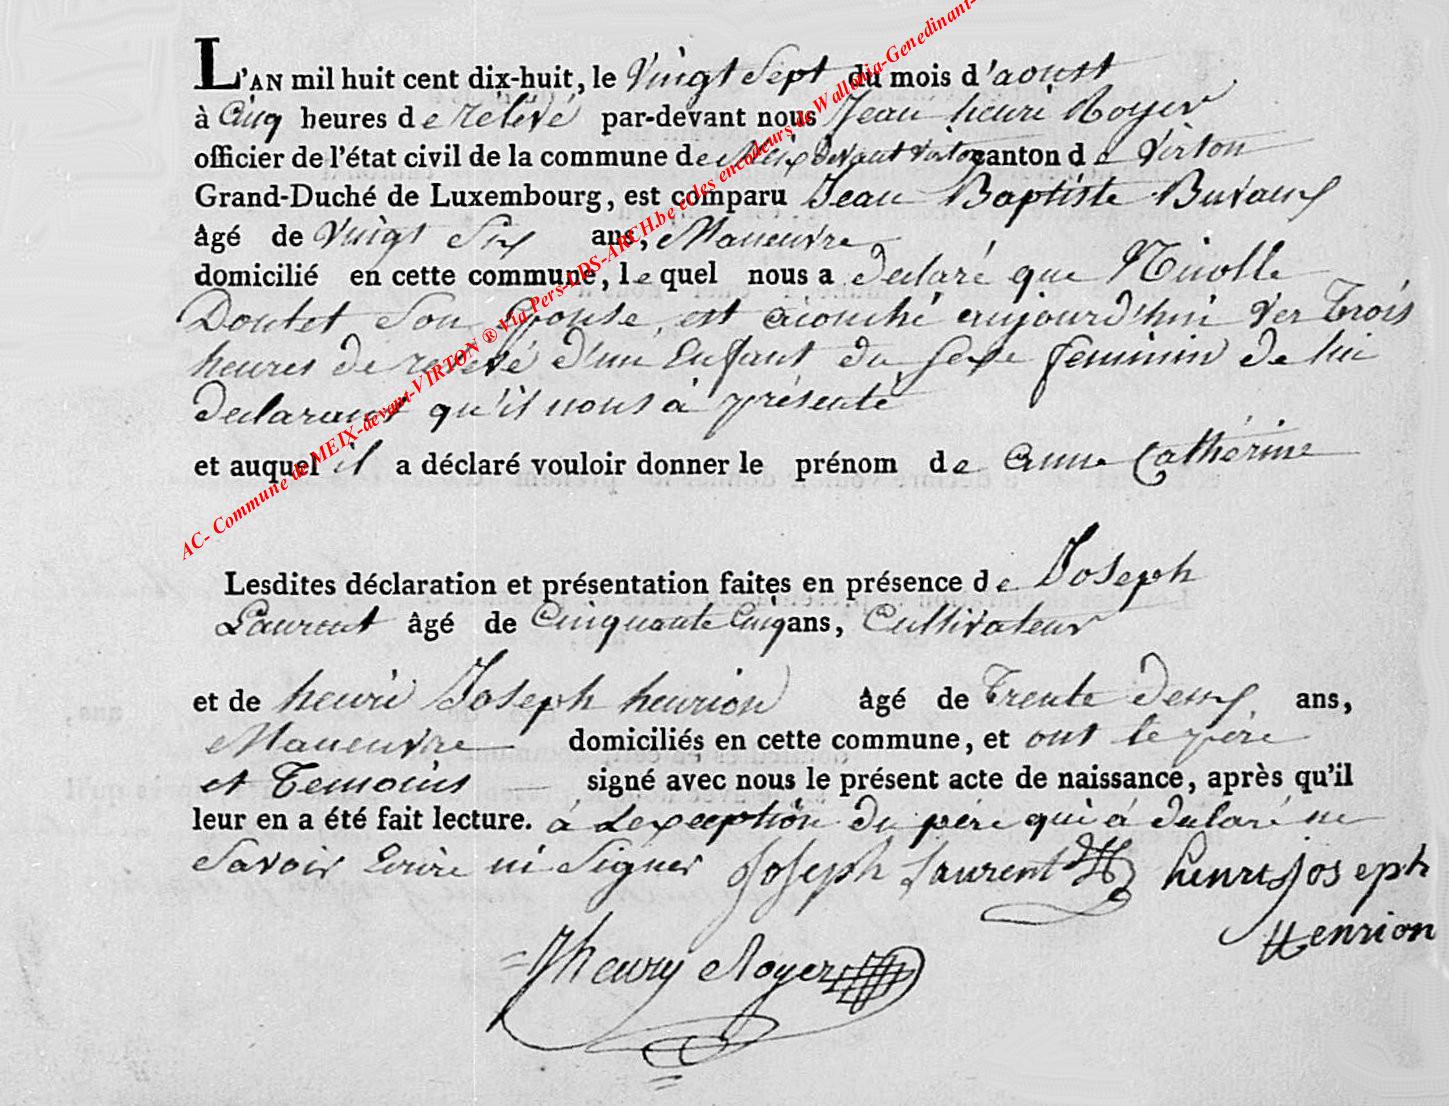 L'AN mil huit cent dix-huit, le Vingt Sept du mois d'aoust
à Cinq heures de relévé par-devant nous Jean henri Royer
officier de l'état civil de la commune de Meix devant virton canton de Virton
Grand-Duché de Luxembourg, est comparu Jean Baptiste Buvaux
âgé de Vingt Six ans, Maneuvre
domicilié en cette commune, lequel nous a declaré que Nicolle
Doutet Son Epouse, est accouché aujourd'hui Ver Trois
heures de relevé d'une Enfant du Sexe feminin de lui
declarant qu'il nous à présenté
et auquel il a déclaré vouloir donner le prénom de anne Cathérine
Lesdites déclaration et présentation faites en présence de Joseph
Laurent âgé de Cinquante Cinq ans, Cultivateur
et de henri Joseph henrion âgé de Trente deux ans,
Maneuvre domiciliés en cette commune, et ont le père
et Temoins signé avec nous le présent acte de naissance, après qu'il
leur en a été fait lecture. à Lexception du père qui à declaré ne
Savoir Ecrire ni Signer Joseph Laurent henri joseph
Henrion
Jhenry Royer
AC- Commune de MEIX-devant-VIRTON ® Via Pers-LDS-ARCH.be &les encodeurs de Wallonia-Genedinant-